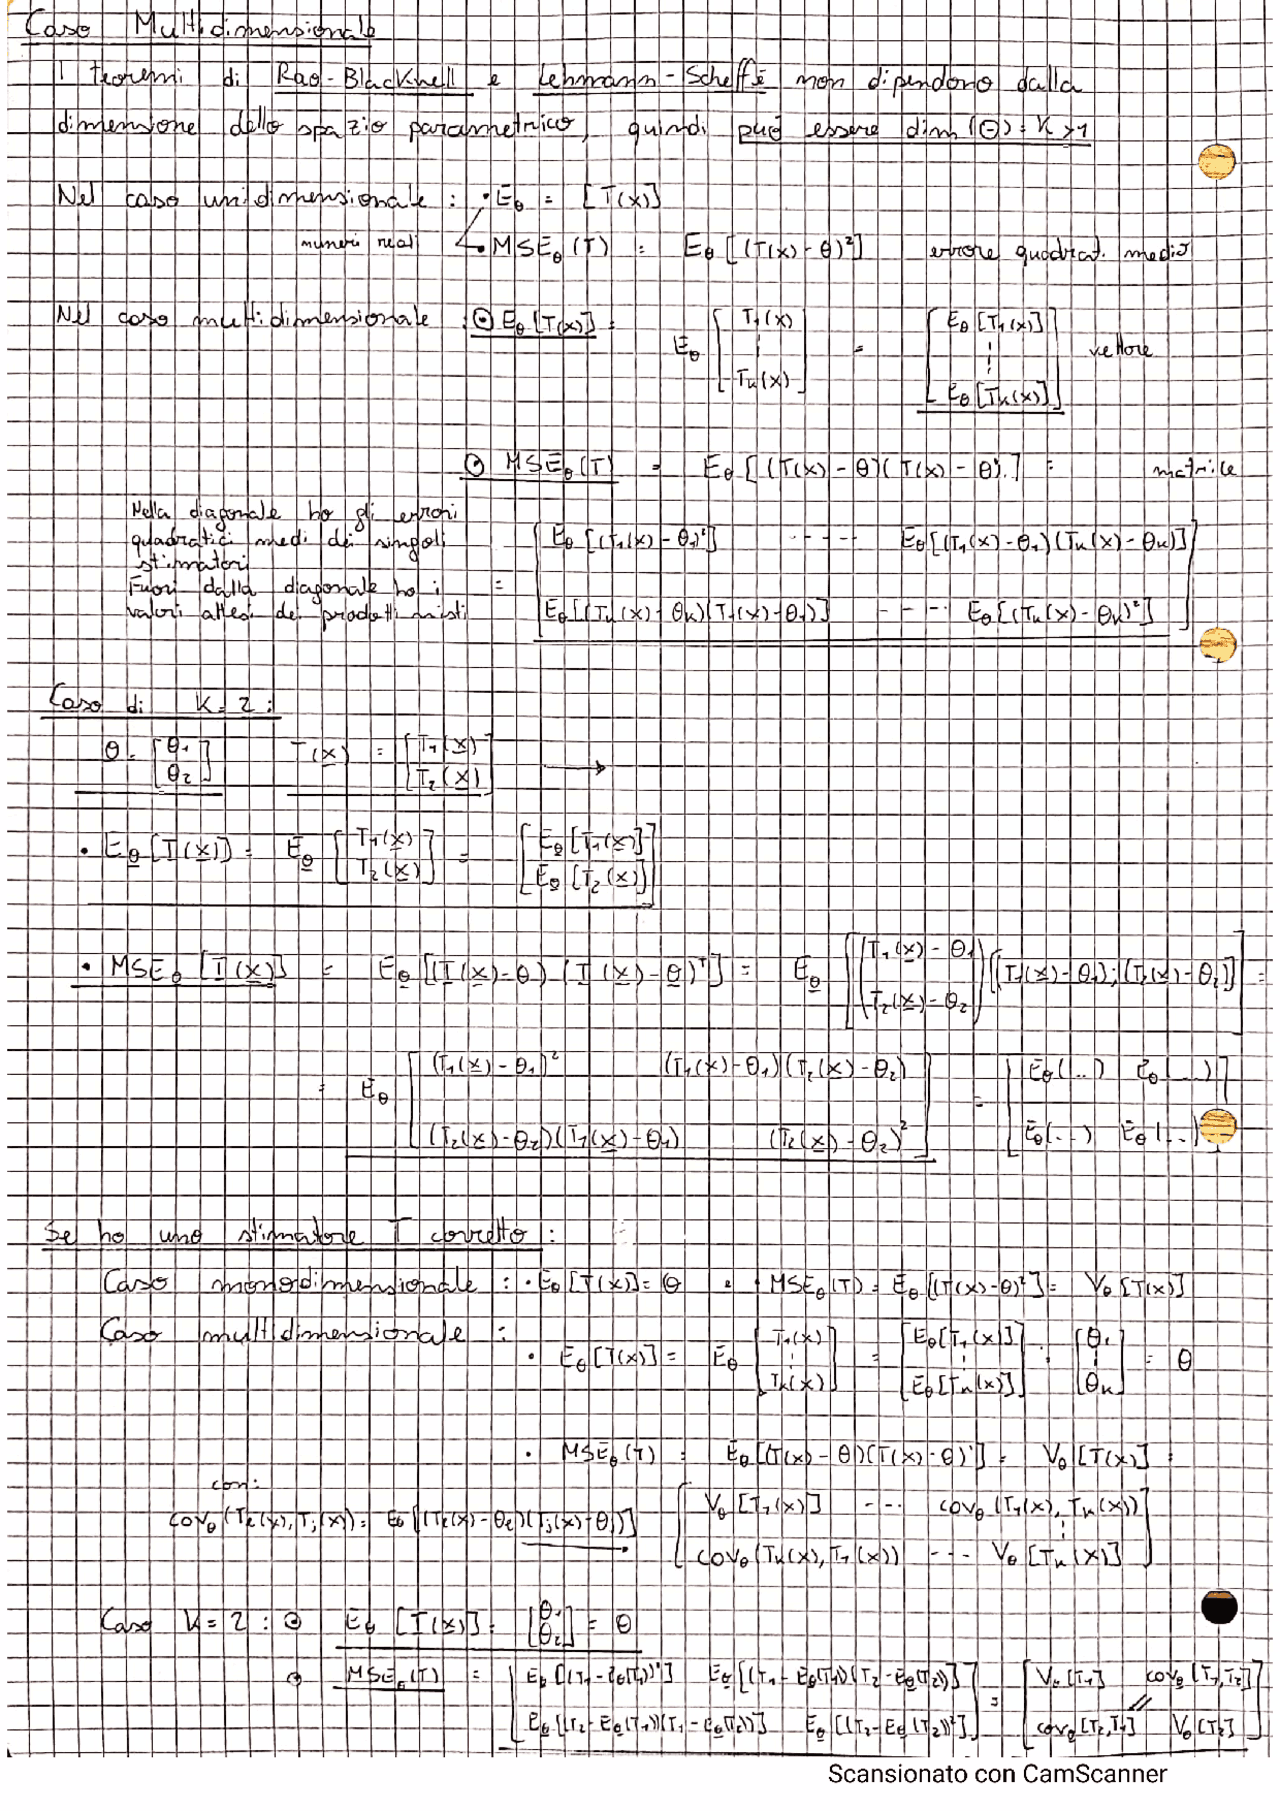 Caso Multidimensionale
I teoremi di Rao-Blackwell e Lehmann-Scheffé non dipendono dalla
dimensione dello spazio parametrico, quindi può essere dim(Θ)=K>1
Nel caso unidimensionale : • Eθ = [T(x)]
numeri reali • MSEθ(T) = Eθ[(T(x)-θ)²] errore quadrat. medio
Nel caso multidimensionale : ⊙ Eθ[T(x)] = Eθ [T₁(x) ⋮ Tk(x)] = [Eθ[T₁(x)] ⋮ Eθ[Tk(x)]] vettore
⊙ MSEθ(T) = Eθ[(T(x)-θ)(T(x)-θ)'] = matrice
Nella diagonale ho gli errori
quadratici medi dei singoli
stimatori
Fuori dalla diagonale ho i
valori attesi dei prodotti misti
= [Eθ[(T₁(x)-θ₁)²] ---- Eθ[(T₁(x)-θ₁)(Tk(x)-θk)]
Eθ[(Tk(x)-θk)(T₁(x)-θ₁)] ---- Eθ[(Tk(x)-θk)²]]
Caso di K=2:
θ = [θ₁ θ₂] T(x) = [T₁(x) T₂(x)] →
• Eθ[T(x)] = Eθ [T₁(x) T₂(x)] = [Eθ[T₁(x)] Eθ[T₂(x)]]
• MSEθ[T(x)] = Eθ[(T(x)-θ)·(T(x)-θ)ᵀ] = Eθ [(T₁(x)-θ₁ T₂(x)-θ₂)[(T₁(x)-θ₁);(T₂(x)-θ₂)]] =
= Eθ [(T₁(x)-θ₁)² (T₁(x)-θ₁)(T₂(x)-θ₂)
(T₂(x)-θ₂)(T₁(x)-θ₁) (T₂(x)-θ₂)²] = [Eθ(..) Eθ(..)
Eθ(..) Eθ(..)]
Se ho uno stimatore T corretto:
Caso monodimensionale : • Eθ[T(x)] = θ • MSEθ(T) = Eθ[(T(x)-θ)²] = Vθ[T(x)]
Caso multidimensionale :
• Eθ[T(x)] = Eθ [T₁(x) ⋮ Tk(x)] = [Eθ[T₁(x)] ⋮ Eθ[Tk(x)]] = [θ₁ ⋮ θk] = θ
• MSEθ(T) = Eθ[(T(x)-θ)(T(x)-θ)'] = Vθ[T(x)] =
con:
[Vθ[T₁(x)] --- covθ(T₁(x),Tk(x))
covθ(Tk(x),T₁(x)) --- Vθ[Tk(x)]]
Caso K=2 : ⊙ Eθ[T(x)] = [θ₁ θ₂] = θ
⊙ MSEθ(T) = [Eθ[(T₁-Eθ(T₁))²] Eθ[(T₁-Eθ(T₁))(T₂-Eθ(T₂))]
Eθ[(T₂-Eθ(T₁))(T₁-Eθ(T₂))] Eθ[(T₂-Eθ(T₂))²]] = [Vθ[T₁] covθ[T₁,T₂]
covθ[T₂,T₁] Vθ[T₂]]
Scansionato con CamScanner